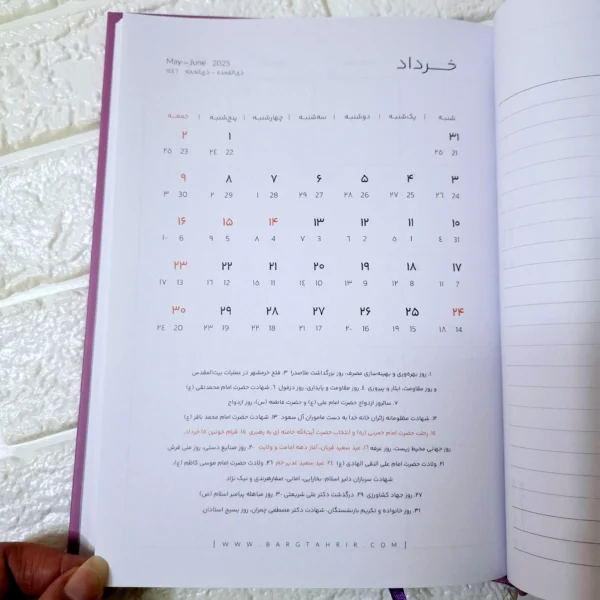 خرداد
May – June 2025
ذی‌القعده - ذی‌الحجه ۱۴۴۶
شنبه | یک‌شنبه | دوشنبه | سه‌شنبه | چهارشنبه | پنج‌شنبه | جمعه
۳۱ ۱ ۲
21 ۲۵ 22 ۲۴ 23 ۲۵
۳ ۴ ۵ ۶ ۷ ۸ ۹
24 ۲۶ 25 ۲۷ 26 ۲۸ 27 ۲۹ 28 ۱ 29 ۲ 30 ۳
۱۰ ۱۱ ۱۲ ۱۳ ۱۴ ۱۵ ۱۶
31 ۴ 1 ۵ 2 ۶ 3 ۷ 4 ۸ 5 ۹ 6 ۱۰
۱۷ ۱۸ ۱۹ ۲۰ ۲۱ ۲۲ ۲۳
7 ۱۱ 8 ۱۲ 9 ۱۳ 10 ۱۴ 11 ۱۵ 12 ۱۶ 13 ۱۷
۲۴ ۲۵ ۲۶ ۲۷ ۲۸ ۲۹ ۳۰
14 ۱۸ 15 ۱۹ 16 ۲۰ 17 ۲۱ 18 ۲۲ 19 ۲۳ 20 ۲۴
۱. روز بهره‌وری و بهینه‌سازی مصرف، روز بزرگداشت ملاصدرا ۳. فتح خرمشهر در عملیات بیت‌المقدس
و روز مقاومت، ایثار و پیروزی ۴. روز مقاومت و پایداری، روز دزفول ۶. شهادت حضرت امام محمدتقی (ع)
۷. سالروز ازدواج حضرت امام علی (ع) و حضرت فاطمه (س)، روز ازدواج
۱۳. شهادت مظلومانه زائران خانه خدا به دست ماموران آل سعود. ۱۳. شهادت حضرت امام محمد باقر (ع)
۱۴. رحلت حضرت امام خمینی (ره) و انتخاب حضرت آیت‌الله خامنه ای به رهبری ۱۵. قیام خونین ۱۵ خرداد،
روز جهانی محیط زیست، روز عرفه ۱۶. عید سعید قربان، آغاز دهه امامت و ولایت ۲۰. روز صنایع دستی، روز ملی فرش
۲۱. ولادت حضرت امام علی النقی الهادی (ع) ۲۴. عید سعید غدیر خم ۲۶. ولادت حضرت امام موسی کاظم (ع)،
شهادت سربازان دلیر اسلام: بخارایی، امانی، صفارهرندی و نیک نژاد
۲۷. روز جهاد کشاورزی ۲۹. درگذشت دکتر علی شریعتی ۳۰. روز مباهله پیامبر اسلام (ص)
۳۱. روز خانواده و تکریم بازنشستگان، شهادت دکتر مصطفی چمران، روز بسیج استادان
| WWW.BARGTAHRIR.COM |